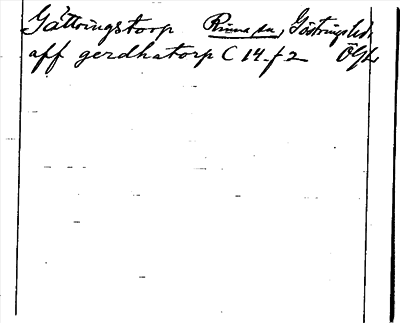 Gättringstorp Rinna sn, Göstrings hd.
aff gerdhatorp C 14 f 2 Ögl.